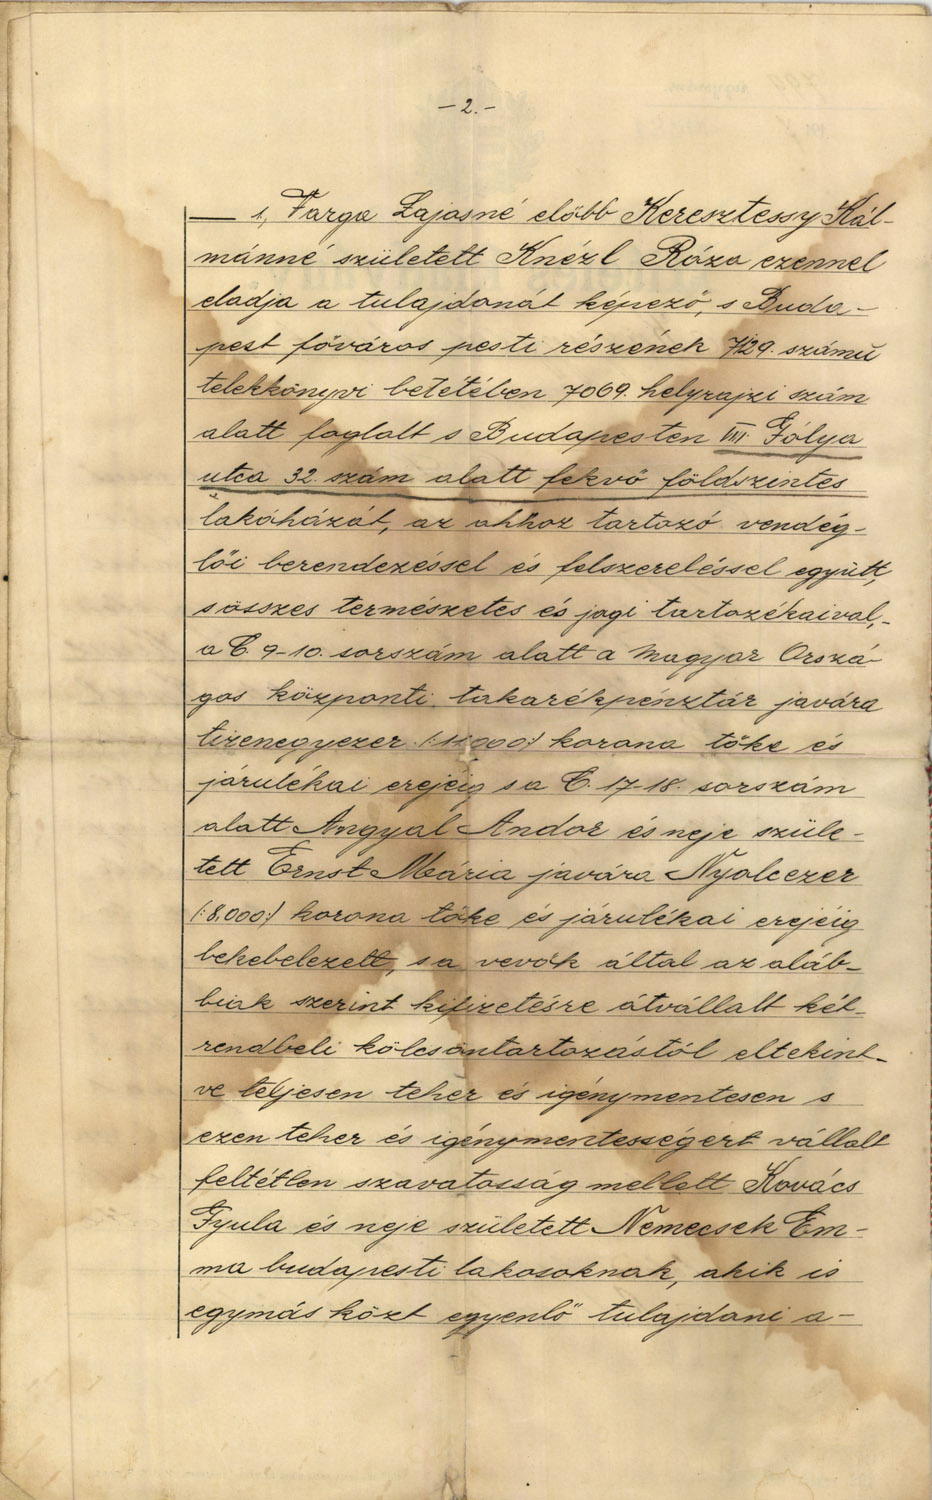 — 2. —
— 1, Varga Lajosné előbb Keresztessy Kál-
mánné született Knézl Róza ezennel
eladja a tulajdonát képező, s Buda-
pest főváros pesti részének 7129. számú
telekkönyvi betétében 7069. helyrajzi szám
alatt foglalt s Budapesten VIII. Gólya
utca 32. szám alatt fekvő földszintes
lakóházát, az ahhoz tartozó vendég-
lői berendezéssel és felszereléssel együtt,
s összes természetes és jogi tartozékaival,-
a C. 9-10. sorszám alatt a Magyar Orszá-
gos központi takarékpénztár javára
tizenegyezer /:11.000:/ korona tőke és
járulékai erejéig s a C. 17-18. sorszám
alatt Angyal Andor és neje szüle-
tett Ernst Mária javára Nyolcezer
/:8.000:/ korona tőke és járulékai erejéig
bekebelezett, s a vevők által az aláb-
biak szerint kifizetésre átvállalt két-
rendbeli kölcsöntartozástól eltekint-
ve teljesen teher és igénymentesen s
ezen teher és igénymentességért vállalt
feltétlen szavatosság mellett Kovács
Gyula és neje született Nemecsek Em-
ma budapesti lakosoknak, akik is
egymás közt egyenlő tulajdoni a-